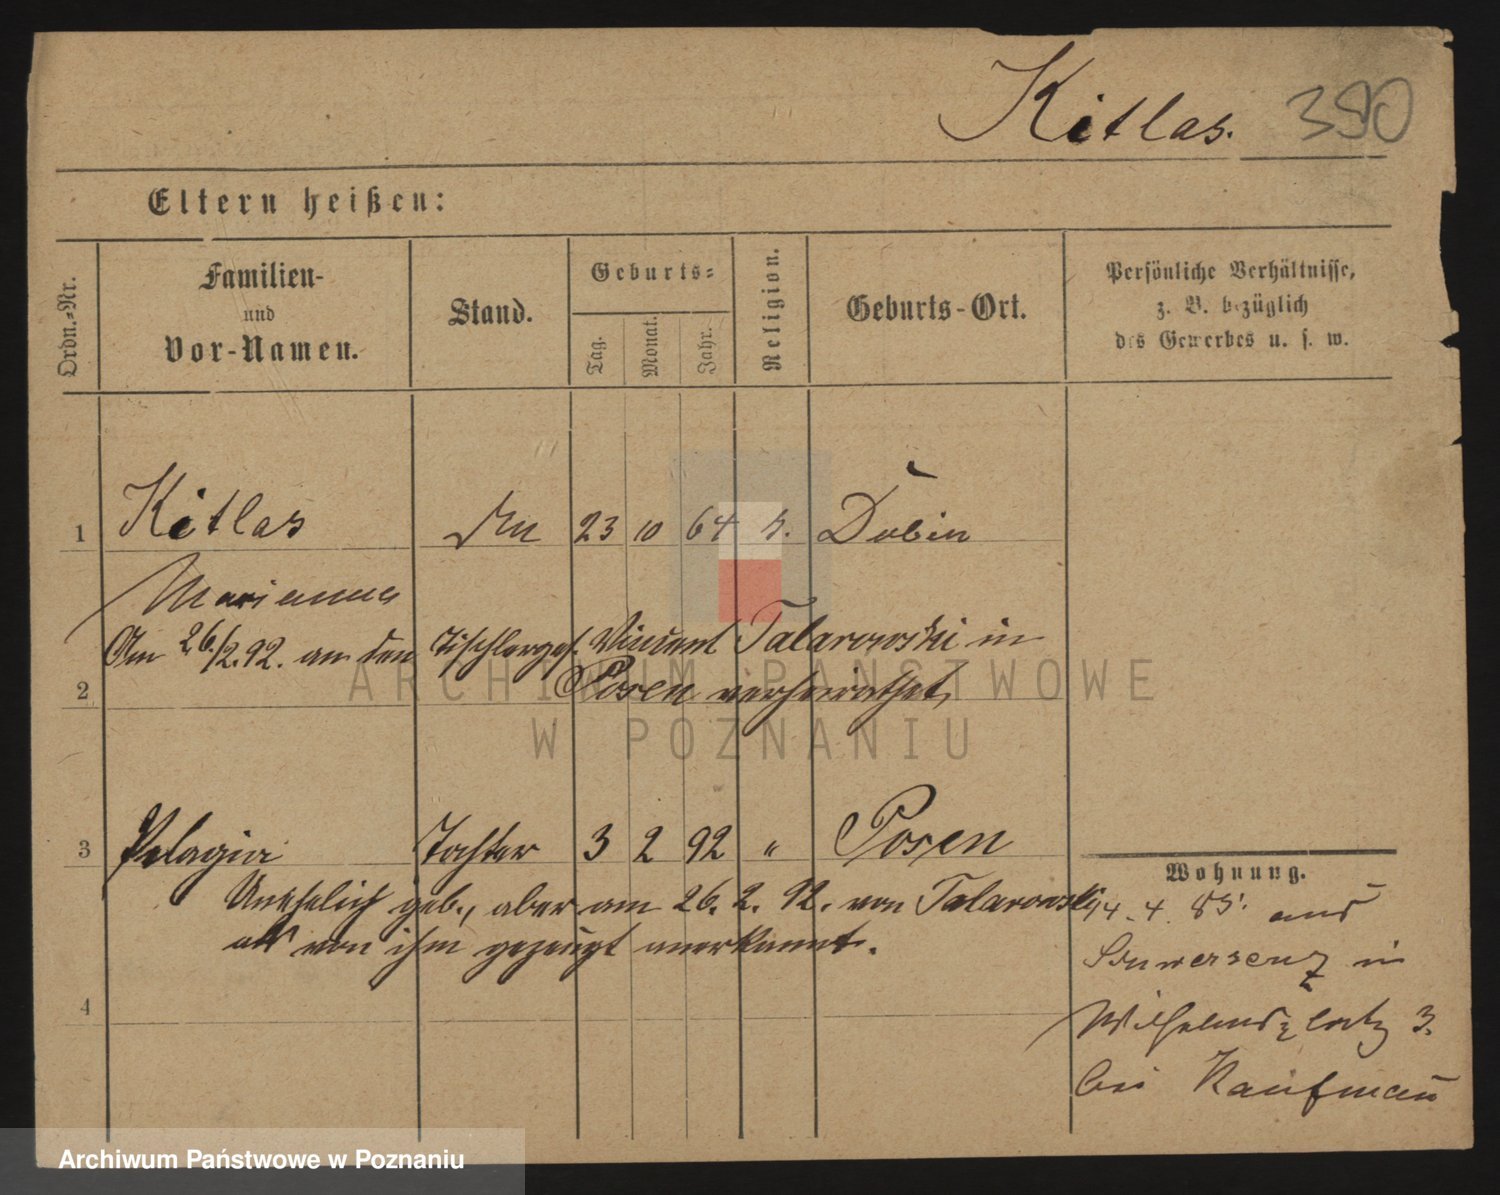 Kitlas. 390
Eltern heißen:
Ordn.-Nr.
Familien-
und
Vor-Namen.
Stand.
Geburts-
Tag.
Monat.
Jahr.
Religion.
Geburts-Ort.
Persönliche Verhältnisse,
z. B. bezüglich
des Gewerbes u. s. w.
1 Kitlas 23 10 64 k. Dubin
Marianna
Am 26./2. 92. an den Tischlerges. Vincent Talarowski in
2 Posen verheirathet,
3 Pelagia Tochter 3 2 92 " Posen
Wohnung.
Unehelich geb., aber am 26. 2. 92. von Talarowski
als von ihm gezeugt anerkannt.
14. 4. 85. aus
Schwersenz in
4
Wilhelmsplatz 3.
bei Kaufmann
ARCHIWUM PAŃSTWOWE
W POZNANIU
Archiwum Państwowe w Poznaniu